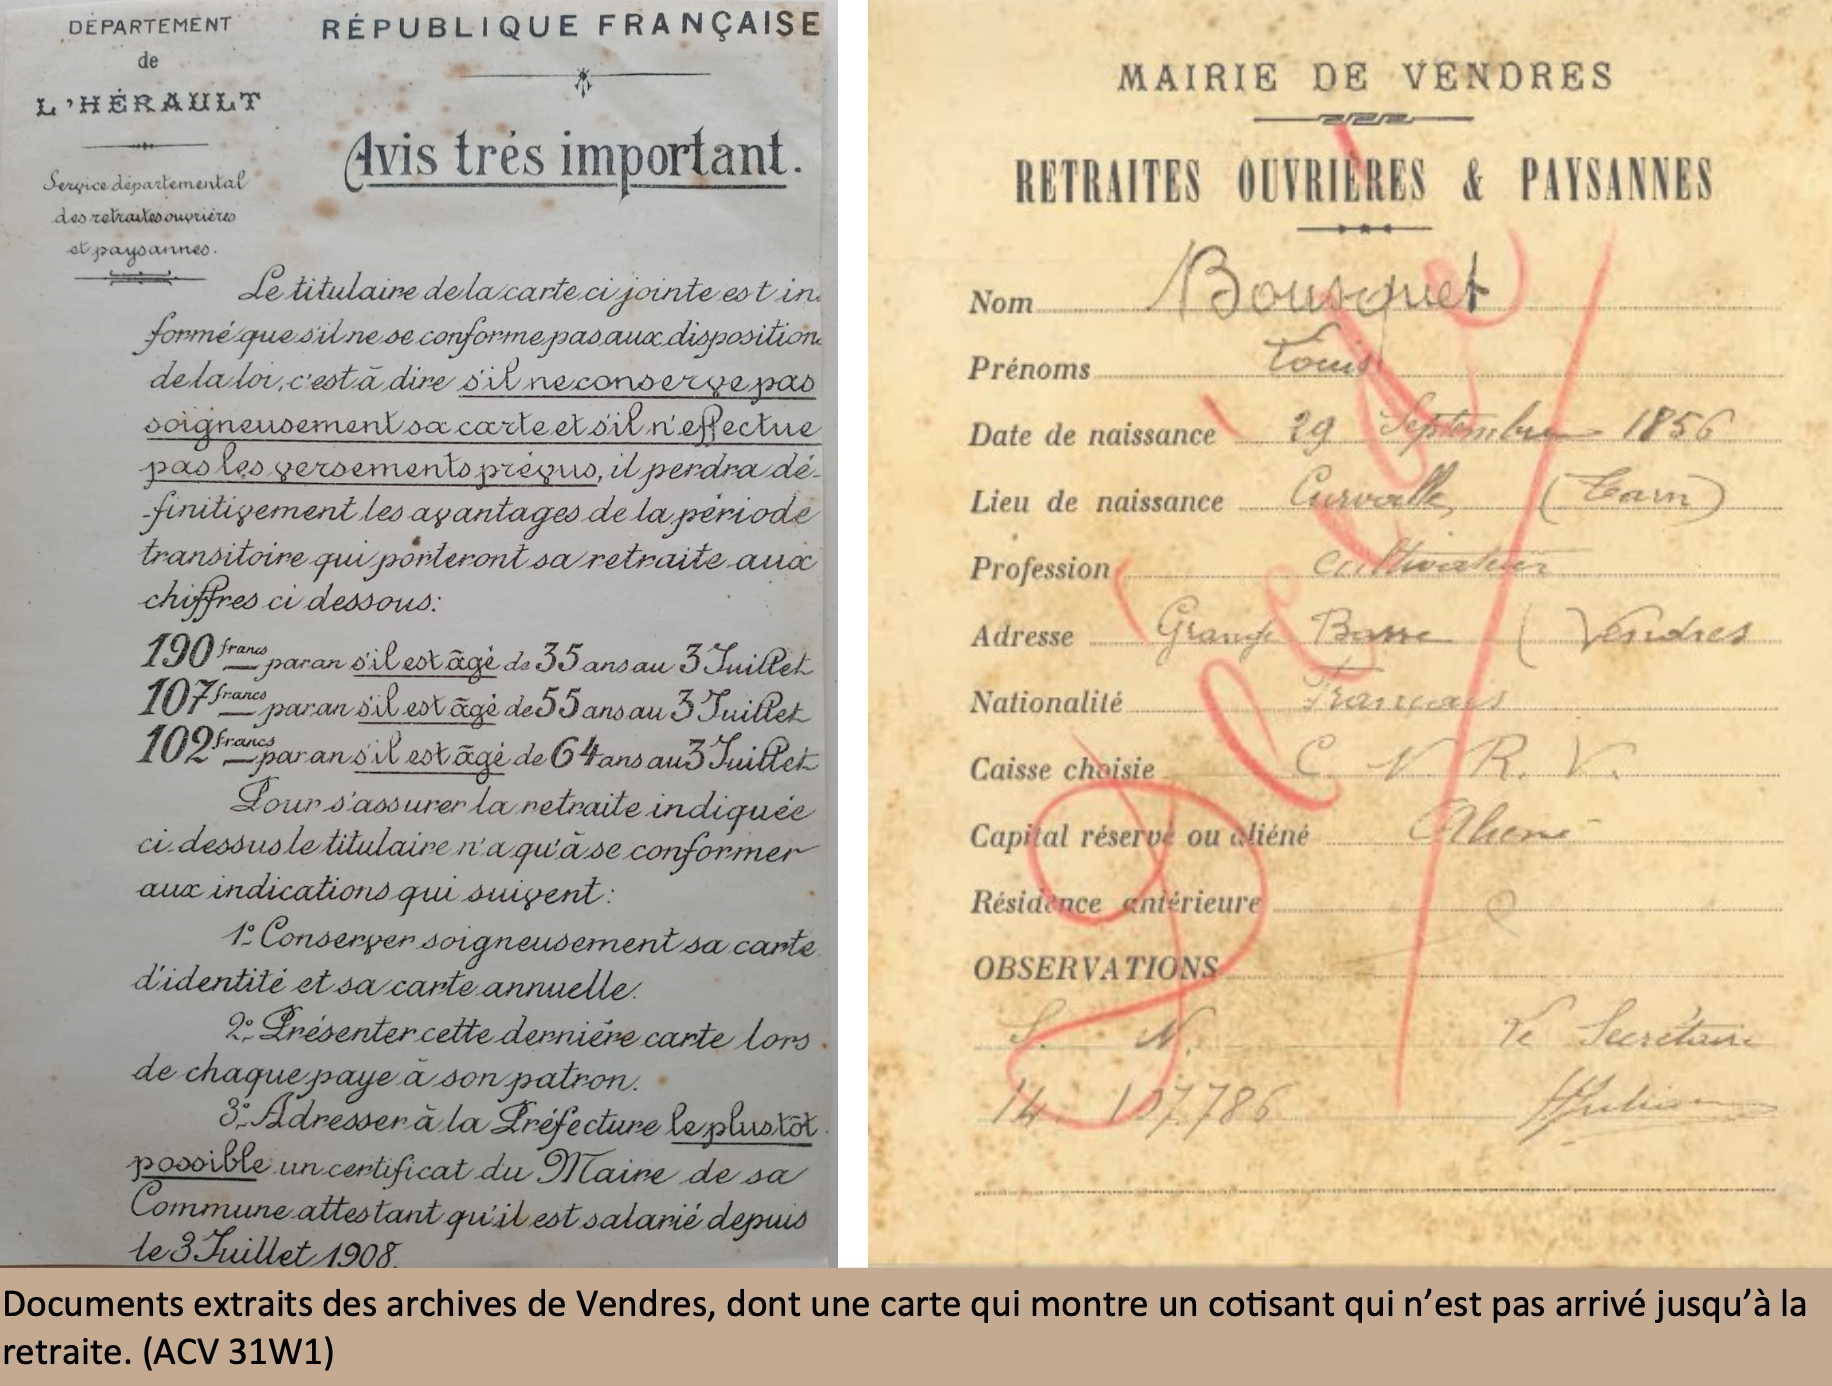 DÉPARTEMENT
de
L'HÉRAULT
Service départemental
des retraites ouvrières
et paysannes.
RÉPUBLIQUE FRANÇAISE
Avis trés important.
Le titulaire de la carte ci jointe est in-
formé que s'il ne se conforme pas aux disposition
de la loi, c'est à dire s'il ne conserve pas
soigneusement sa carte et s'il n'effectue
pas les versements prévus, il perdra dé-
-finitivement les avantages de la période
transitoire qui porteront sa retraite aux
chiffres ci dessous:
190 francs par an s'il est âgé de 35 ans au 3 Juillet
107 francs par an s'il est âgé de 55 ans au 3 Juillet
102 francs par an s'il est âgé de 64 ans au 3 Juillet
Pour s'assurer la retraite indiquée
ci.dessus le titulaire n'a qu'à se conformer
aux indications qui suivent:
1º Conserver soigneusement sa carte
d'identité et sa carte annuelle.
2º Présenter cette derniére carte lors
de chaque paye à son patron.
3º Adresser à la Préfecture le plus tôt
possible un certificat du Maire de sa
Commune attestant qu'il est salarié depuis
le 3 Juillet 1908.
MAIRIE DE VENDRES
RETRAITES OUVRIÈRES & PAYSANNES
Nom Bousquet
Prénoms Louis
Date de naissance 29 Septembre 1856
Lieu de naissance Curvalle, (Tarn)
Profession cultivateur
Adresse Grange Basse (Vendres
Nationalité Français
Caisse choisie C. N. R. V.
Capital réservé ou aliéné Aliené
Résidence antérieure
OBSERVATIONS
S. N. Le Secrétaire
14 107.786
Décédé
Documents extraits des archives de Vendres, dont une carte qui montre un cotisant qui n'est pas arrivé jusqu'à la
retraite. (ACV 31W1)